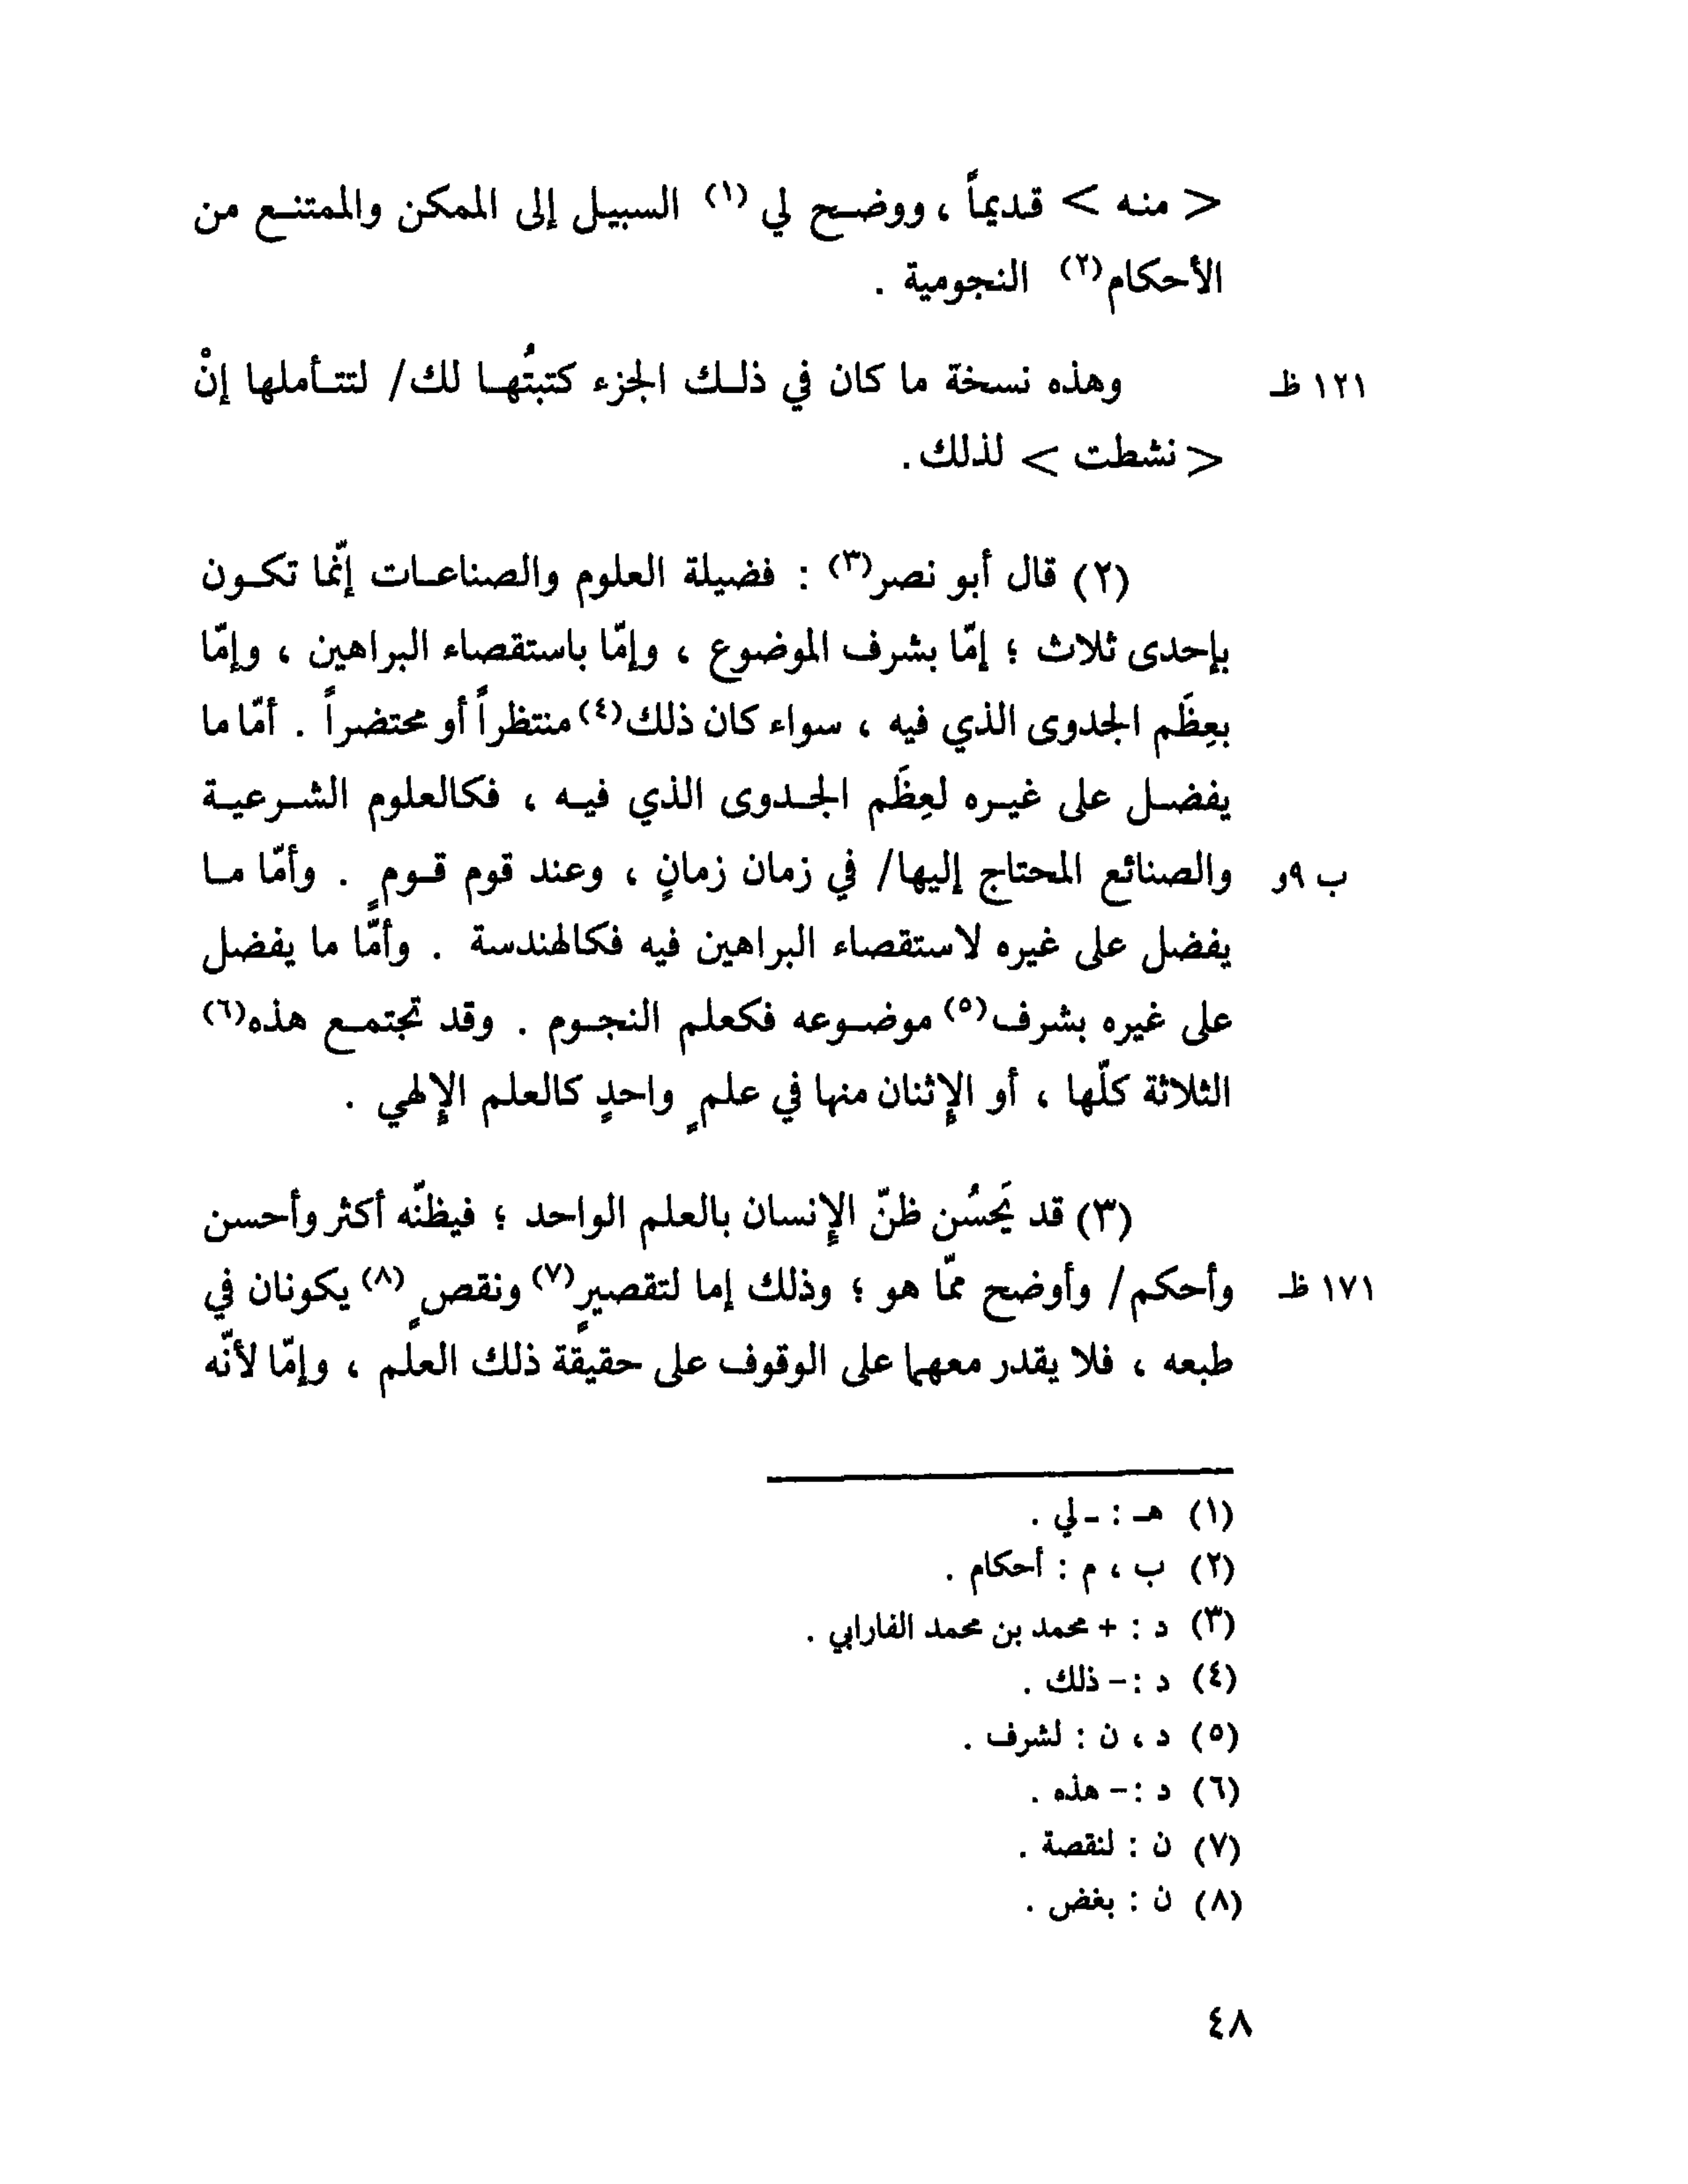 < منه > قديماً ، ووضح لي (١) السبيل إلى الممكن والممتنع من
الأحكام(٢) النجومية .
١٢١ ظ وهذه نسخة ما كان في ذلك الجزء كتبتُها لك/ لتتأملها إنْ
< نشطت > لذلك .
(٢) قال أبو نصر(٣) : فضيلة العلوم والصناعات إنّما تكون
بإحدى ثلاث ؛ إمّا بشرف الموضوع ، وإمّا باستقصاء البراهين ، وإمّا
بعِظَم الجدوى الذي فيه ، سواء كان ذلك(٤) منتظراً أو محتضراً . أمّا ما
يفضل على غيره لعِظَم الجدوى الذي فيه ، فكالعلوم الشرعية
ب ٩و والصنائع المحتاج إليها/ في زمان زمانٍ ، وعند قوم قومٍ . وأمّا ما
يفضل على غيره لاستقصاء البراهين فيه فكالهندسة . وأمّا ما يفضل
على غيره بشرف(٥) موضوعه فكعلم النجوم . وقد تجتمع هذه(٦)
الثلاثة كلّها ، أو الإثنان منها في علمٍ واحدٍ كالعلم الإلهي .
(٣) قد يَحسُن ظنّ الإنسان بالعلم الواحد ؛ فيظنّه أكثر وأحسن
١٧١ ظ وأحكم/ وأوضح ممّا هو ؛ وذلك إما لتقصيرٍ(٧) ونقصٍ(٨) يكونان في
طبعه ، فلا يقدر معهما على الوقوف على حقيقة ذلك العلم ، وإمّا لأنّه
(١) هـ : - لي .
(٢) ب ، م : أحكام .
(٣) د : + محمد بن محمد الفارابي .
(٤) د : - ذلك .
(٥) د ، ن : لشرف .
(٦) د : - هذه .
(٧) ن : لنقصة .
(٨) ن : بغض .
٤٨